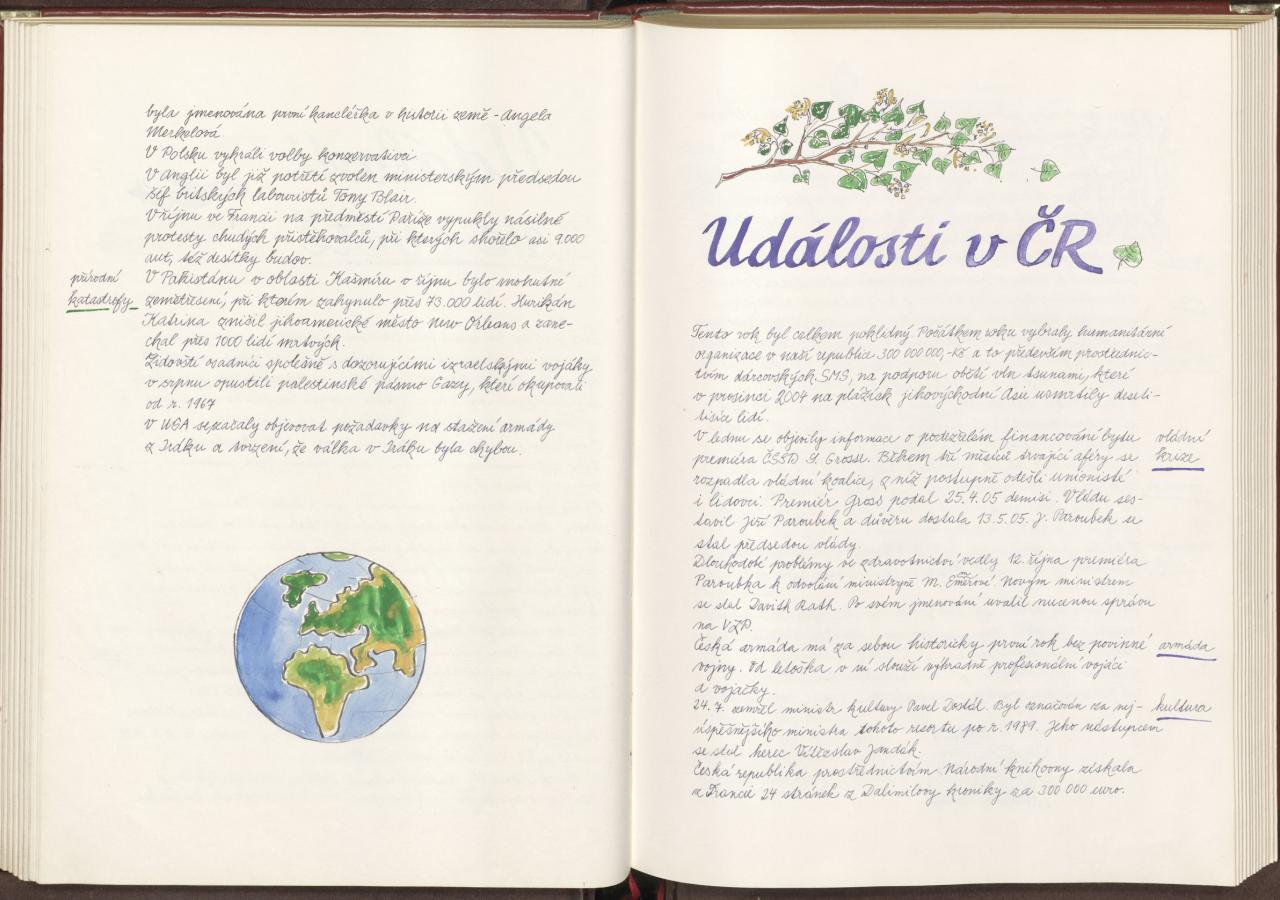 byla jmenována první kancléřka v historii země - Angela
Merkelová.
V Polsku vyhráli volby konzervativci.
V Anglii byl již potřetí zvolen ministerským předsedou
šéf britských labouristů Tony Blair.
V říjnu ve Francii na předměstí Paříže vypukly násilné
protesty chudých přistěhovalců, při kterých shořelo asi 9.000
aut, též desítky budov.
přírodní
katastrofy
V Pakistánu v oblasti Kašmíru v říjnu bylo mohutné
zemětřesení, při kterém zahynulo přes 73.000 lidí. Hurikán
Katrina zničil jihoamerické město New Orleans a zane-
chal přes 1000 lidí mrtvých.
Židovští osadníci společně s dozorujícími izraelskými vojáky
v srpnu opustili palestinské pásmo Gazy, které okupovali
od r. 1967
V USA se začaly objevovat požadavky na stažení armády
z Iráku a tvrzení, že válka v Iráku byla chybou.
Události v ČR
Tento rok byl celkem poklidný. Počátkem roku vybraly humanitární
organizace v naší republice 300 000 000,-Kč a to především prostřednic-
tvím dárcovských SMS, na podporu obětí vln tsunami, které
v prosinci 2004 na plážích jihovýchodní Asie usmrtily deseti-
tisíce lidí.
V lednu se objevily informace o podezřelém financování bytu
premiéra ČSSD S. Grosse. Během tří měsíců trvající aféry se
rozpadla vládní koalice, z níž postupně odešli unionisté
i lidovci. Premiér Gross podal 25.4.05 demisi. Vládu ses-
tavil Jiří Paroubek a důvěru dostala 13.5.05. J. Paroubek se
stal předsedou vlády.
vládní
krize
Dlouhodobé problémy ve zdravotnictví vedly 12. října premiéra
Paroubka k odvolání ministryně M. Emmerové. Novým ministrem
se stal Davith Rath. Po svém jmenování uvalil nucenou správu
na VZP.
Česká armáda má za sebou historicky první rok bez povinné
vojny. Od letoška v ní slouží výhradně profesionální vojáci
a vojačky.
armáda
24. 7. zemřel ministr kultury Pavel Dostál. Byl označován za nej-
úspěšnějšího ministra tohoto resortu po r. 1989. Jeho nástupcem
se stal herec Vítězslav Jandák.
kultura
Česká republika prostřednictvím Národní knihovny získala
z Francie 24 stránek z Dalimilovy kroniky za 300 000 euro.